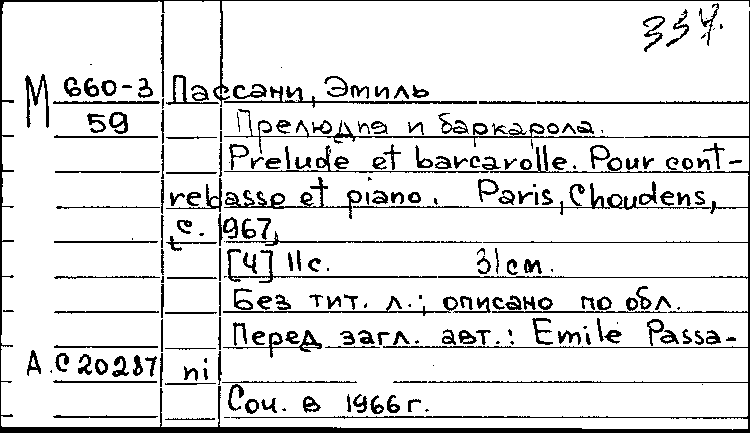 337.
М 660-3 Пассани, Эмиль
59 Прелюдия и баркарола.
Prelude et barcarolle. Pour cont-
rebasse et piano. Paris, Choudens,
c. 1967,
[4] 11 с. 31 см.
Без тит. л.; описано по обл.
Перед загл. авт.: Emile Passa-
А.С20287 ni
Соч. в 1966 г.